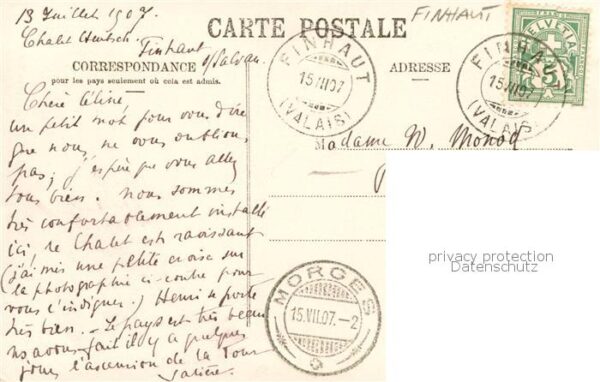 13 Juillet 1907.
Chalet Hentsch.
Finhaut
s/Salvan.
CARTE POSTALE
FINHAUT
CORRESPONDANCE
pour les pays seulement où cela est admis.
ADRESSE
FINHAUT
15 VII 07
(VALAIS)
FINHAUT
15 VII 07
(VALAIS)
HELVETIA
5
Chère Céline,
un petit mot pour vous dire
que nous ne vous oublions
pas; j'espère que vous allez
tous bien. Nous sommes
très confortablement installés
ici, le Chalet est ravissant
(j'ai mis une petite croix sur
la photographie ci-contre pour
vous l'indiquer.) Henri se porte
très bien. - Le pays est très beau
ns avons fait il y a quelques
jours l'ascension de la Tour
Salière.
Madame W. Monod
MORGES
15.VII.07.-2
privacy protection
Datenschutz